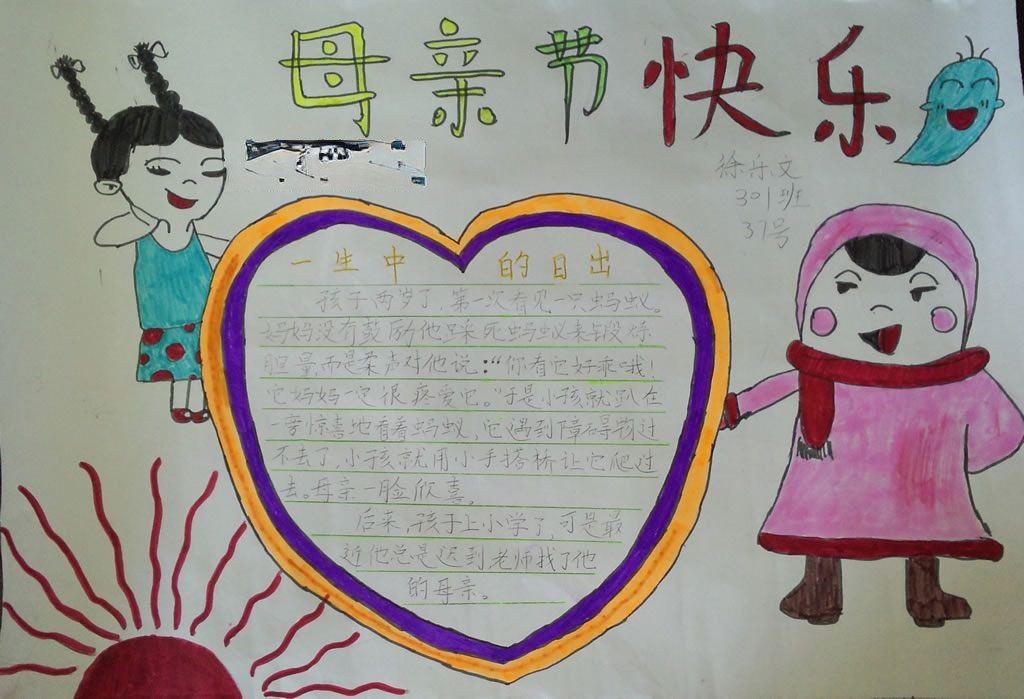 母亲节快乐
徐乐文
301班
37号
一生中的日出
孩子两岁了,第一次看见一只蚂蚁。
妈妈没有鼓励他踩死蚂蚁来锻炼
胆量而是柔声对他说:“你看它好乖哦!
它妈妈一定很疼爱它。”于是小孩就趴在
一旁惊喜地看着蚂蚁,它遇到障碍物过
不去了,小孩就用小手搭桥让它爬过
去。母亲一脸欣喜。
后来,孩子上小学了,可是最
近他总是迟到老师找了他
的母亲。